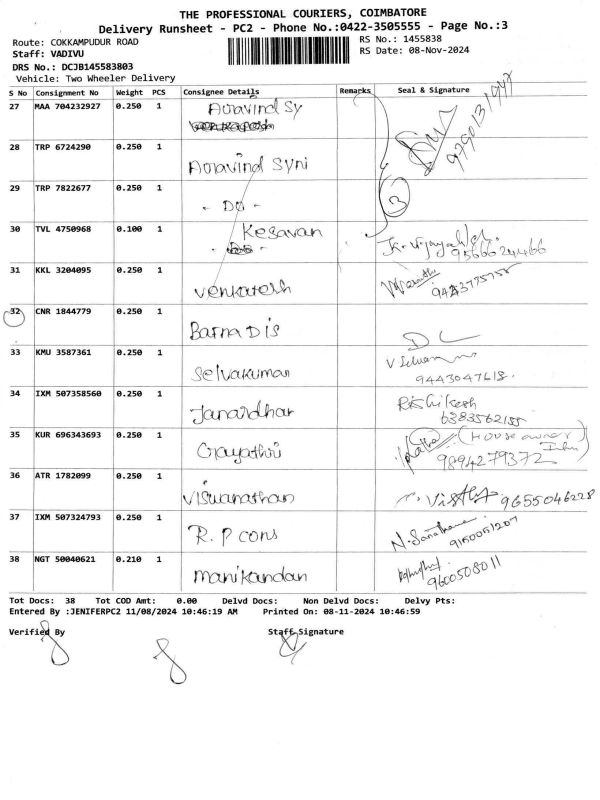 THE PROFESSIONAL COURIERS, COIMBATORE
Delivery Runsheet - PC2 - Phone No.:0422-3505555 - Page No.:3
Route: COKKAMPUDUR ROAD
RS No.: 1455838
Staff: VADIVU
RS Date: 08-Nov-2024
DRS No.: DCJB145583803
Vehicle: Two Wheeler Delivery
S No Consignment No Weight PCS Consignee Details Remarks Seal & Signature
27 MAA 704232927 0.250 1 Aravind Sy
28 TRP 6724290 0.250 1 Aravind Syni
29 TRP 7822677 0.250 1 - Do - 3
30 TVL 4750968 0.100 1 Kesavan 9566624466
31 KKL 3204095 0.250 1 Venkatesh
32 CNR 1844779 0.250 1 Barnadis
33 KMU 3587361 0.250 1 Selvakumar 9443047618.
34 IXM 507358560 1 0.250 Janardhar Rishikesh 6383562155
35 KUR 696343693 0.250 1 Gayathri (House owner) 9894279372
36 ATR 1782099 0.250 1 Viswanathan 9655046228
37 IXM 507324793 0.250 1 R. P cons 9150051207
38 NGT 50040621 0.210 1 Manikandan 9600508011
Tot Docs: 38 Tot COD Amt: 0.00 Delvd Docs: Non Delvd Docs: Delvy Pts:
Entered By :JENIFERPC2 11/08/2024 10:46:19 AM Printed On: 08-11-2024 10:46:59
Verified By Staff Signature